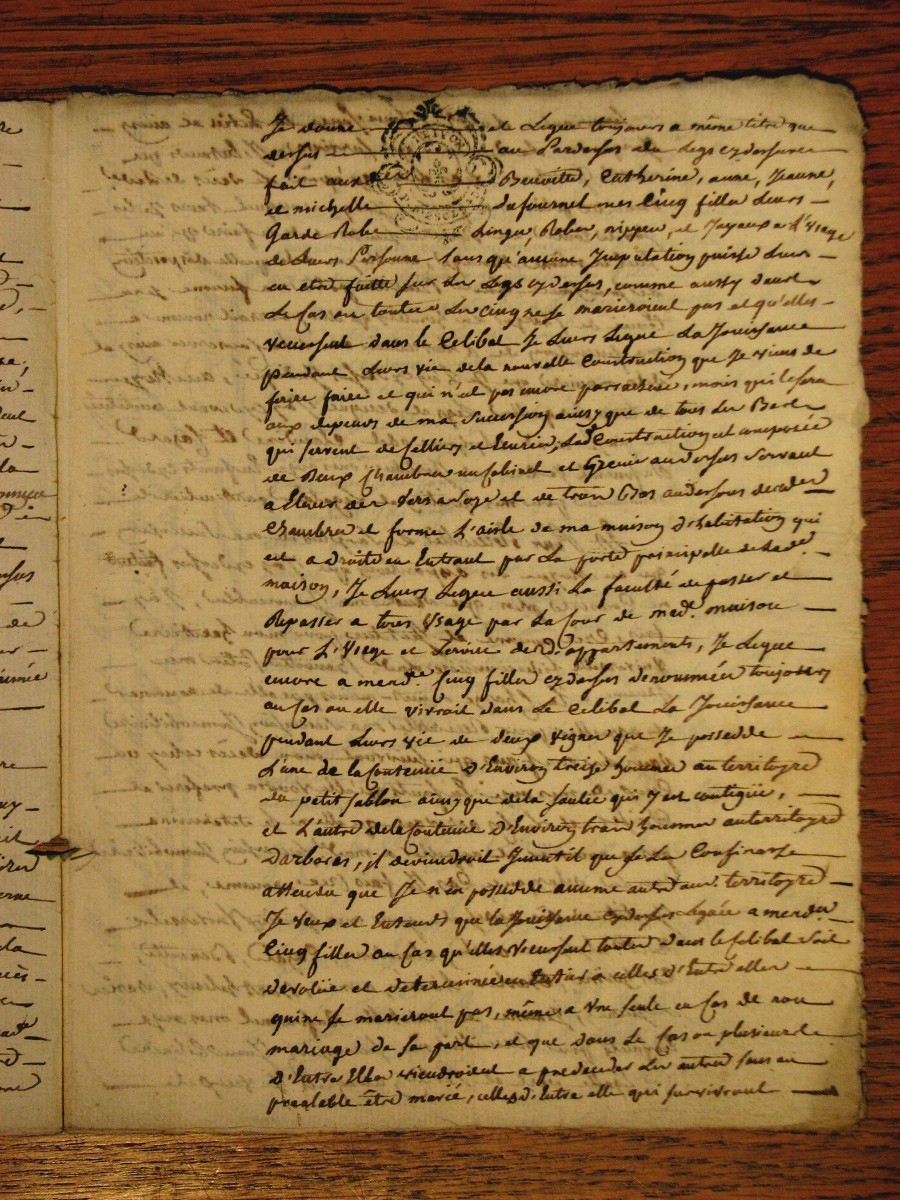 Je donne et Legue toujours a même titre que
dessus au Pardessus du Legs cydessus
fait aux Benoitte, Catherine, anne, Jeanne,
et michelle dufournel mes Cinq filles Leurs
Garde Robe Linges, Robes, nippes, et Joyaux a L'Usage
de Leurs Personne sans qu'aucune Imputation puisse Leurs
en etre faitte sur Les Legs cydessus, comme aussy dans
Le Cas ou toutes Les cinq ne se marieroient pas et qu'elles
vecussent dans le Celibat Je Leurs Legue La Jouissance
pendant Leurs vie de la nouvelle Construction que Je viens de
faire faire et qui n'est pas encore parachevée, mais qui le sera
aux depens de ma succession ainsy que de tous Les
qui servent de selliers et Ecuries, Lad Construction est composée
de Deux Chambres un Cabinet et Grenier au dessus servant
a Elever des Vers a soye et de trois au dessous desdes
Chambres et forme L'aisle de ma maison d'habitation qui
est a Droite en Entrant par La porte principalle de Lade
maison, Je Leurs Legue aussi La faculté de passer et
Repasser a tous Usage par La Cour de mad. maison
pour L'Usage et Service desd. appartements, Je Legue
encore a mesde Cinq filles cydessus denommées toujours
au Cas ou elle vivroit dans Le Celibat La Jouissance
pendant Leurs vie de deux vignes que Je possedde
L'une de la Contenüe d'Environ treise hommes au territoyre
du petit sablon ainsy que de la saulée qui y est contigüe,
et L'autre de la Contenüe d'Environ trois hommes au territoyre
Darboras, il deviendroit Inutil que Je La Confinasse
attendu que Je n'en possedde aucune autre aud. territoyre
Je veux et Entends que la Jouissance cydessus Leguée a mesdes
Cinq filles au Cas qu'elles vecussent toutes dans le Celibat soit
devolüe et determinée en Entier a celles d'Entre elles
qui ne se marieront pas, même a Une seule en Cas de non
mariage de sa part, et que dans Le Cas ou plusieurs
d'Entre Elles viendroient a predeceder Les autres sans au
prealable être marié, celles d'Entre elle qui survivront